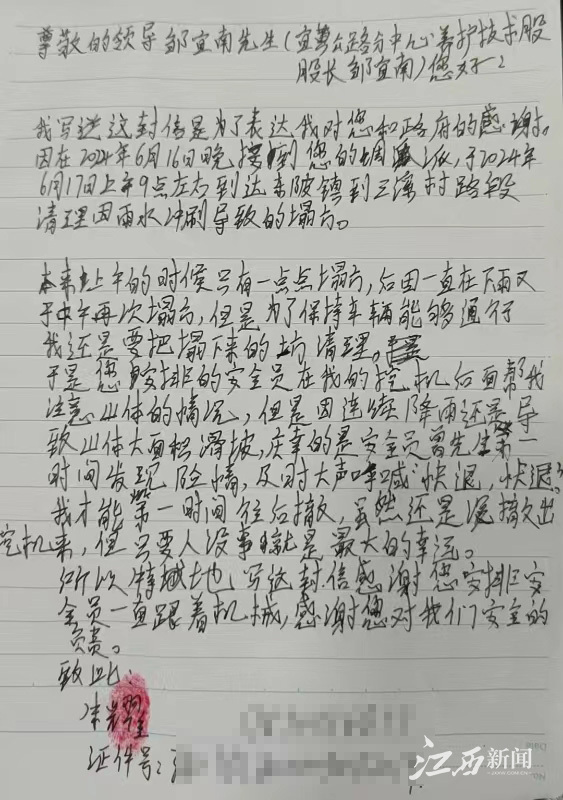 尊敬的领导邹宜南先生(宜黄公路分中心养护技术股
股长邹宜南)您好:
我写这封信是为了表达我对您和政府的感谢。
因在2024年6月16日晚接到您的调派,于2024年
6月17日上午9点左右到达东陂镇到三溪村路段
清理因雨水冲刷导致的塌方。
本来上午的时候只有一点点塌方,后因一直在下雨又
于中午再次塌方,但是为了保持车辆能够通行
我还是要把塌下来的土方清理。
于是您安排的安全员在我的挖机后面帮我
注意山体的情况,但是因连续降雨还是导
致山体大面积滑坡,庆幸的是安全员曾先生第一
时间发现险情,及时大声呼喊"快退,快退"
我才能第一时间往后撤,虽然还是没撤出
挖机来,但只要人没事就是最大的幸运。
所以特城地写这封信感谢您安排安
全员一直跟着机械,感谢您对我们安全的
负责。
致此:
朱
证件号:
江西新闻